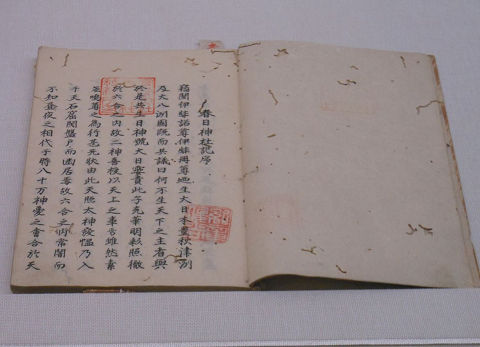 春日神社記序
竊聞伊弉諾尊伊弉冊尊廼生大日本豊秋津州
及大八洲國既而共議曰何不生天下之主者歟
於是共生日神號大日孁貴此子光華明彩照徹
於六合之内故二神喜授以天上之事古雖然素
戔嗚尊之為行甚无状由此天照太神發慍乃入
于天石窟閇磐戸而幽居焉故六合之内常闇而
不知晝夜之相代于時八十万神憂之會合於天